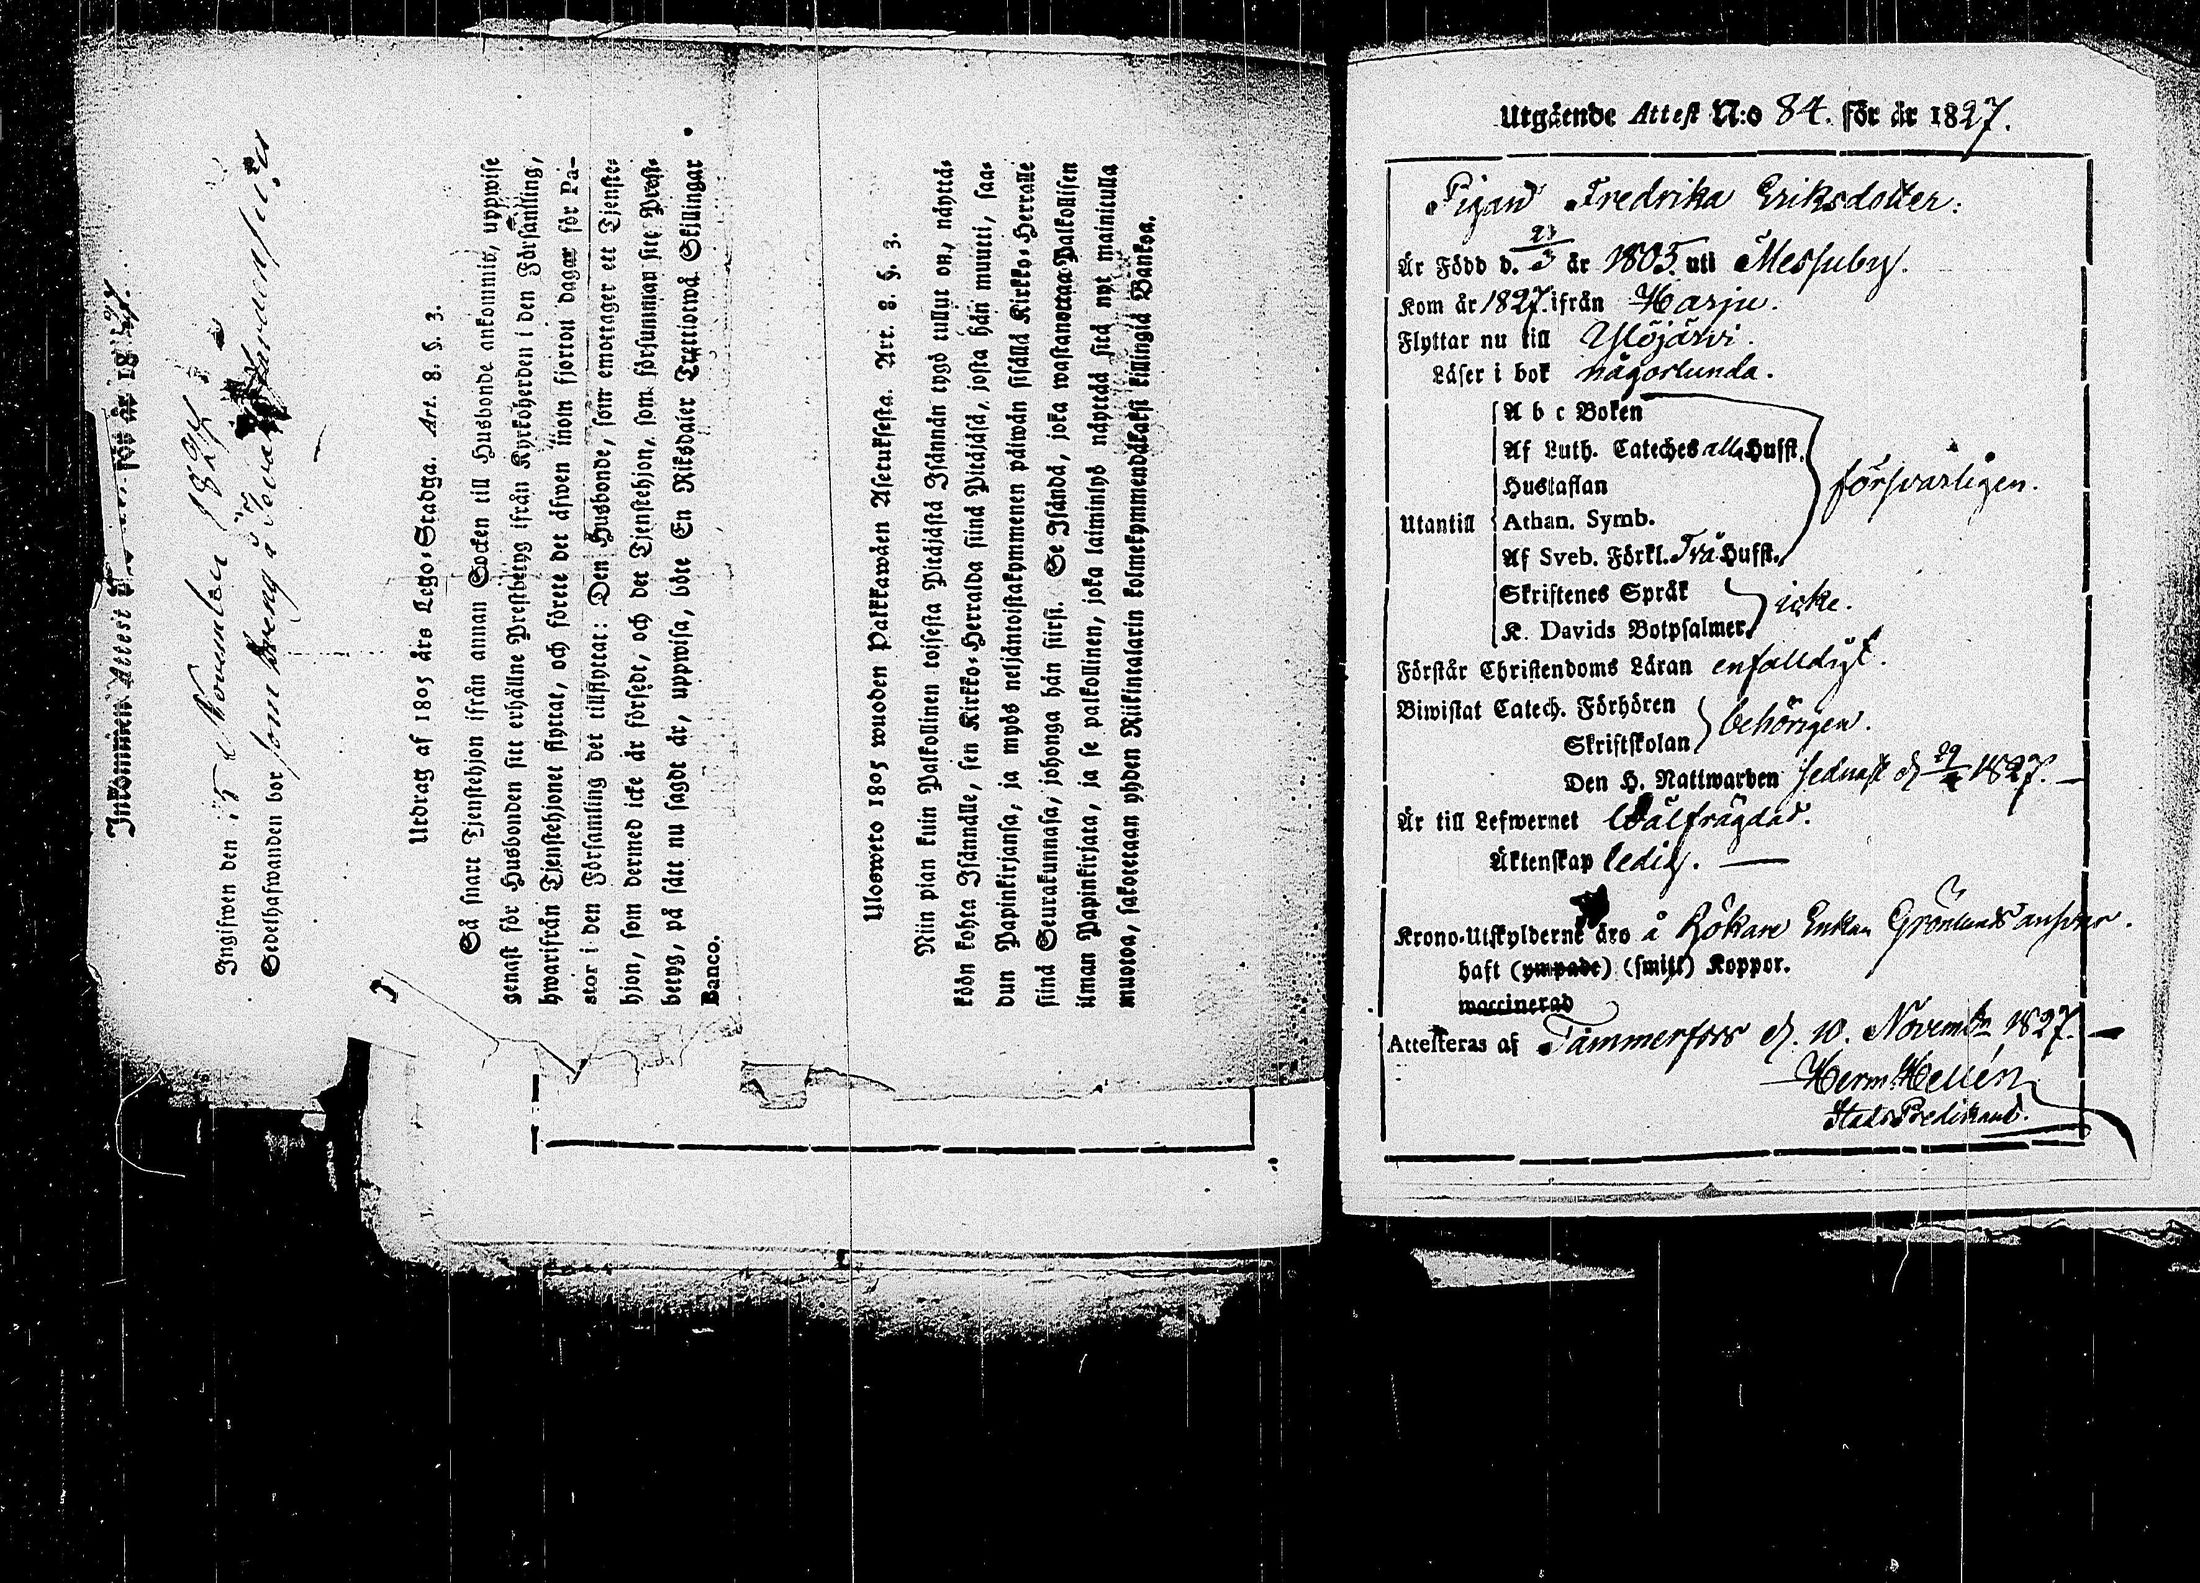 Inkommen Attest för år 1827.
Ingifwen den 15 November 1827
Sedelhafwanden bor som dreng å
Utdrag af 1805 års Lego-Stadga. Art. 8. §. 3.
Så snart Tjenstehjon ifrån annan Socken till Husbonde ankommit, uppwise
genast för Husbonden sitt erhållne Prestbetyg ifrån Kyrkoherden i den Församling,
hwarifrån Tjenstehjonet flyttat, och förete det äfwen inom fjorton dagar för Pa-
stor i den Församling det tillflyttat: Den Husbonde, som emottager ett Tjenste-
hjon, som dermed icke är försedt, och det Tjenstehjon, som försummar sitt Prest-
betyg, på sätt nu sagdt är, uppwisa, böte En Riksdaler Trettiotwå Skillingar
Banco.
Ulosweto 1805 wuoden Palkkawäen Asetuksesta. Art. 8. §. 3.
Niin pian kuin Palkollinen toisesta Pitäjästä Isännän tygö tullut on, näyttä-
köön kohta Isännälle, sen Kirkko-Herralda siinä Pitäjäsä, josta hän muutti, saa-
dun Papinkirjansa, ja myös neljäntoistakymmenen päiwän sisällä Kirkko-Herralle
siinä Seurakunnasa, johonga hän siirsi. Se Isändä, joka wastanottaa Palkollisen
ilman Papinkirjata, ja se palkollinen, joka laiminlyö näyttää sitä nyt mainitulla
muotoa, sakotetaan yhden Riikintalarin kolmekymmendäkaksi killingiä Bankoa.
Utgående Attest N:o 84. för år 1827.
Pigan Fredrika Eriksdotter.
Är Född d. 23/3 år 1805. uti Messuby.
Kom år 1827. ifrån Harju.
Flyttar nu till Ylöjärvi.
Läser i bok någorlunda.
A b c Boken
Af Luth. Cateches alla Hufst.
Hustaflan
försvarligen.
Utantill Athan. Symb.
Af Sveb. Förkl. Två Hufst.
Skriftenes Språk
icke.
K. Davids Botpsalmer
Förstår Christendoms Läran enfalldigt.
Biwistat Catech. Förhören
behörigen.
Skriftskolan
Den H. Nattwarden sednast d 29/4 1827.
Är till Lefwernet Wälfrägdad.
Äktenskap ledig.
Krono-Utskylderne äro å Rökare Enkan Grönlunds answar.
haft (ympade) (smitt) Koppor.
waccinerad
Attesteras af Tammerfors d. 10. Novemb 1827.
Herm. Hellén
Stads Predikant.